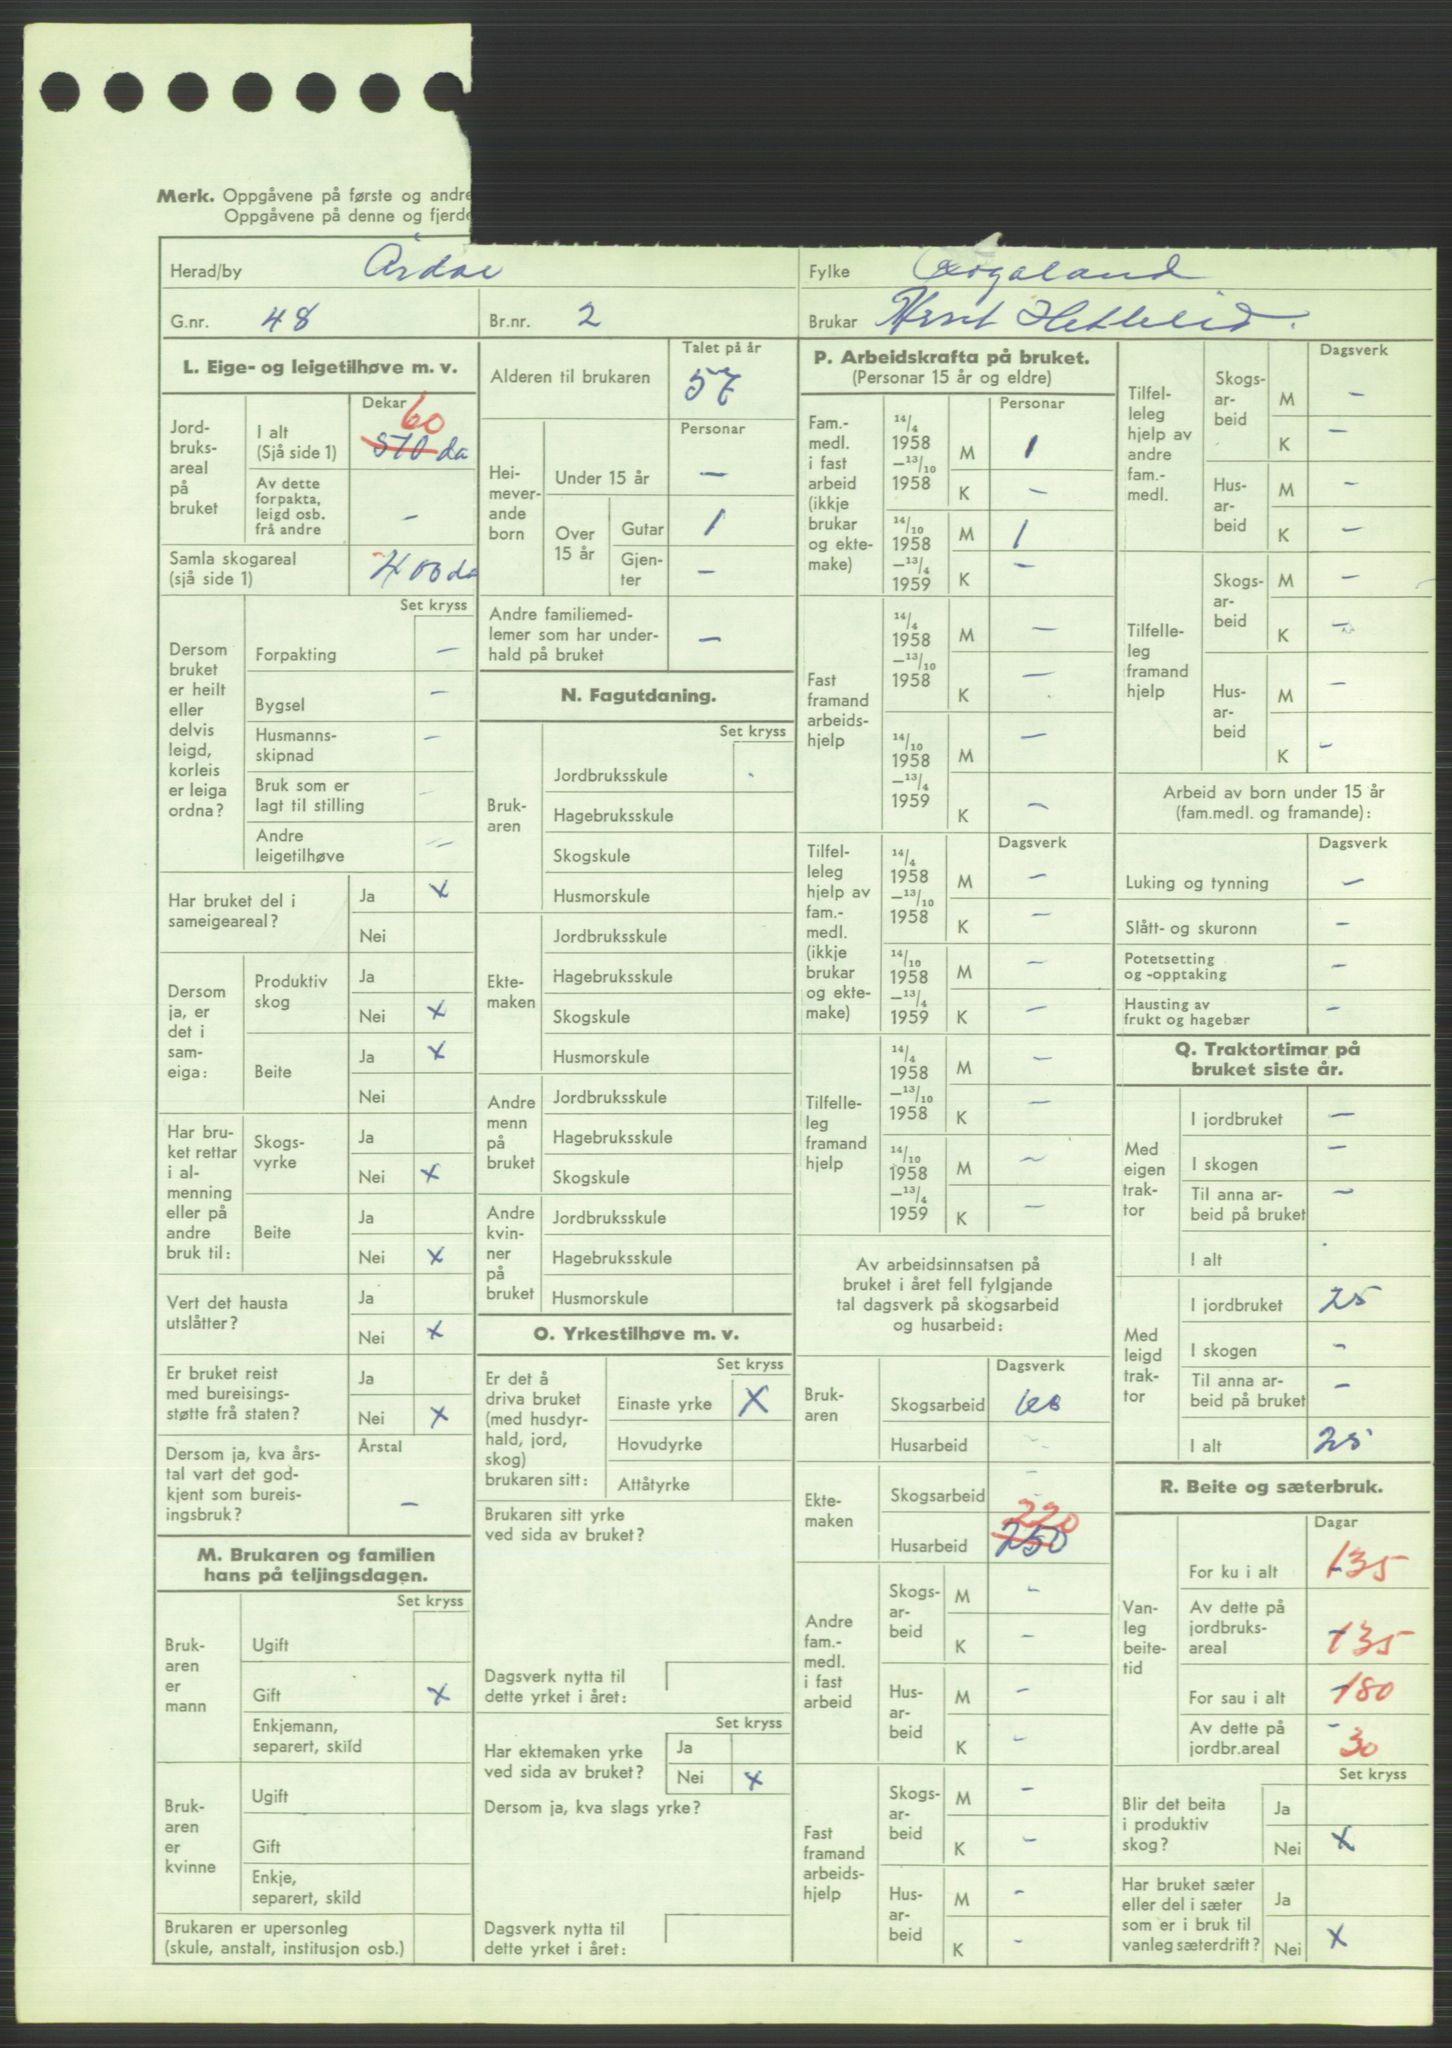 Merk. Oppgåvene på første og andre
Oppgåvene på denne og fjerde
Herad/by Årdal
Fylke Rogaland
G.nr. 48
Br.nr. 2
Brukar
L. Eige- og leigetilhøve m. v.
Dekar
Jordbruksareal på bruket
I alt (Sjå side 1) 60 570 da
Av dette forpakta, leigd osb. frå andre –
Samla skogareal (sjå side 1) 400 da
Set kryss
Dersom bruket er heilt eller delvis leigd, korleis er leiga ordna?
Forpakting –
Bygsel –
Husmannsskipnad –
Bruk som er lagt til stilling –
Andre leigetilhøve –
Har bruket del i sameigeareal?
Ja x
Nei
Dersom ja, er det i sameiga:
Produktiv skog
Ja
Nei x
Beite
Ja x
Nei
Har bruket rettar i almenning eller på andre bruk til:
Skogsvyrke
Ja
Nei x
Beite
Ja
Nei x
Vert det hausta utslåtter?
Ja
Nei x
Er bruket reist med bureisingsstøtte frå staten?
Ja
Nei x
Årstal
Dersom ja, kva årstal vart det godkjent som bureisingsbruk? –
M. Brukaren og familien hans på teljingsdagen.
Set kryss
Brukaren er mann
Ugift
Gift x
Enkjemann, separert, skild
Brukaren er kvinne
Ugift
Gift
Enkje, separert, skild
Brukaren er upersonleg (skule, anstalt, institusjon osb.)
Talet på år
Alderen til brukaren 57
Personar
Heimeverande born
Under 15 år –
Over 15 år
Gutar 1
Gjenter –
Andre familiemedlemer som har underhald på bruket –
N. Fagutdaning.
Set kryss
Brukaren
Jordbruksskule
Hagebruksskule
Skogskule
Husmorskule
Ektemaken
Jordbruksskule
Hagebruksskule
Skogskule
Husmorskule
Andre menn på bruket
Jordbruksskule
Hagebruksskule
Skogskule
Andre kvinner på bruket
Jordbruksskule
Hagebruksskule
Husmorskule
O. Yrkestilhøve m. v.
Set kryss
Er det å driva bruket (med husdyrhald, jord, skog) brukaren sitt:
Einaste yrke X
Hovudyrke
Attåtyrke
Brukaren sitt yrke ved sida av bruket?
Dagsverk nytta til dette yrket i året:
Set kryss
Har ektemaken yrke ved sida av bruket?
Ja
Nei x
Dersom ja, kva slags yrke?
Dagsverk nytta til dette yrket i året:
P. Arbeidskrafta på bruket.
(Personar 15 år og eldre)
Personar
Fam.-medl. i fast arbeid (ikkje brukar og ektemake)
14/4 1958 –13/10 1958
M 1
K –
14/10 1958 –13/4 1959
M 1
K –
Fast framand arbeidshjelp
14/4 1958 –13/10 1958
M –
K –
14/10 1958 –13/4 1959
M –
K –
Dagsverk
Tilfelleleg hjelp av fam.-medl. (ikkje brukar og ektemake)
14/4 1958 –13/10 1958
M –
K –
14/10 1958 –13/4 1959
M –
K –
Tilfelleleg framand hjelp
14/4 1958 –13/10 1958
M –
K –
14/10 1958 –13/4 1959
M –
K –
Av arbeidsinnsatsen på
bruket i året fell fylgjande
tal dagsverk på skogsarbeid
og husarbeid:
Dagsverk
Brukaren
Skogsarbeid
Husarbeid –
Ektemaken
Skogsarbeid –
Husarbeid 220 250
Andre fam.-medl. i fast arbeid
Skogsarbeid
M –
K –
Husarbeid
M –
K –
Fast framand arbeidshjelp
Skogsarbeid
M –
K –
Husarbeid
M –
K –
Dagsverk
Tilfelleleg hjelp av andre fam.-medl.
Skogsarbeid
M –
K –
Husarbeid
M –
K –
Tilfelleleg framand hjelp
Skogsarbeid
M –
K –
Husarbeid
M –
K –
Arbeid av born under 15 år
(fam.medl. og framande):
Dagsverk
Luking og tynning –
Slått- og skuronn –
Potetsetting og -opptaking –
Hausting av frukt og hagebær –
Q. Traktortimar på bruket siste år.
Med eigen traktor
I jordbruket –
I skogen –
Til anna arbeid på bruket –
I alt
Med leigd traktor
I jordbruket 25
I skogen –
Til anna arbeid på bruket –
I alt 25
R. Beite og sæterbruk.
Dagar
Vanleg beitetid
For ku i alt 135
Av dette på jordbruksareal 135
For sau i alt 180
Av dette på jordbr.areal 30
Set kryss
Blir det beita i produktiv skog?
Ja
Nei x
Har bruket sæter eller del i sæter som er i bruk til vanleg sæterdrift?
Ja
Nei x